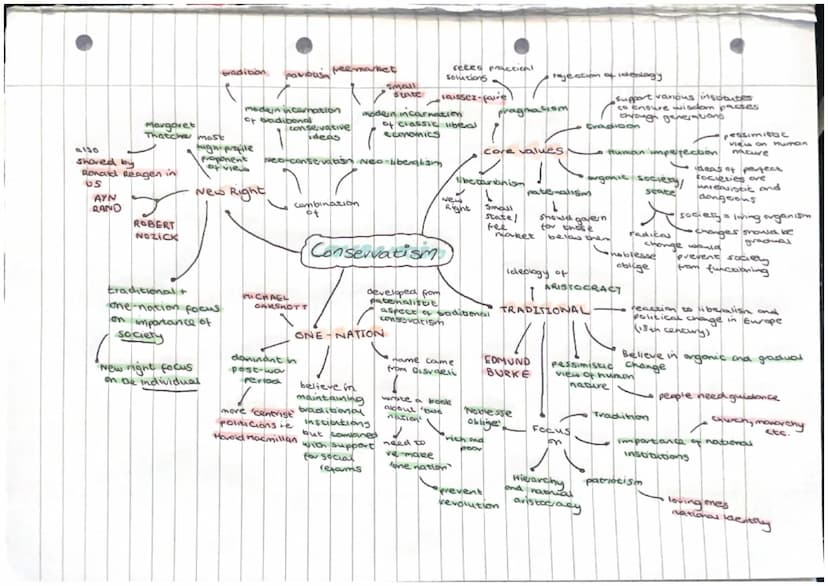 tradition
previous
free-market
small
state
laissez-faire
modern incarnation
of traditional
conservative
ideas
modern incarnation
of classic liberal
economics
neo-conservatism
neo-liberalism
combination
of
Margaret
Thatcher
most
high-profile
proponent
of view
also
shared by
Ronald Reagen in
US
AYN
RAND
ROBERT
NOZICK
New Right
traditional +
one-nation focus
on importance of
society
New right focus
on the individual
Conservatism
seeks practical
solutions
rejection of ideology
pragmatism
core values
support various institutes
to ensure wisdom passes
through generations
tradition
Human imperfection
pessimistic
view on human
nature
ideas of perfect
societies are
unrealistic and
dangerous
organic society/
state
society = living organism
changes should be
gradual
radical
change would
prevent society
from functioning
libertarianism
New
Right
small
state/
free
market
paternalism
should govern
for those
below them
noblesse
oblige
ideology of
ARISTOCRACY
TRADITIONAL
reaction to liberalism and
political change in Europe
(18th century)
Believe in organic and gradual
change
pessimistic
view of human
nature
people need guidance
EDMUND
BURKE
Focus
on
'Noblesse
oblige'
Tradition
importance of national
institutions
church, monarchy
etc.
patriotism
loving ones
national identity
Hierarchy
and natural
aristocracy
MICHAEL
OAKSHOTT
ONE-NATION
developed from
paternalistic
aspect of traditional
conservatism
dominant in
post-war
period
more 'centrist'
politicians i.e
Harold Macmillan
believe in
maintaining
traditional
institutions
but combined
with support
for social
reforms
name came
from Disraeli
wrote a book
about 'two
nation'
rich and
poor
need to
re-make
'one nation'
prevent
revolution